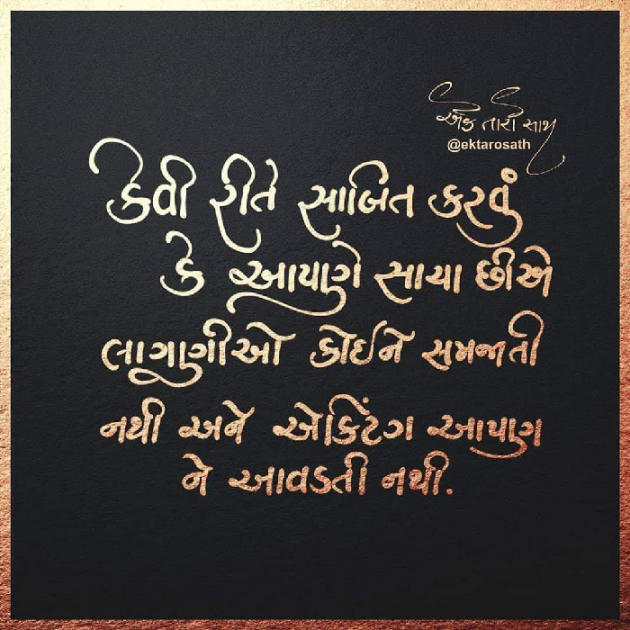 એક તારો સાથ
@ektarosath
કેવી રીતે સાબિત કરવું
કે આપણે સાચા છીએ
લાગણીઓ કોઈને સમજાતી
નથી અને એકિટંગ આપણ
ને આવડતી નથી.